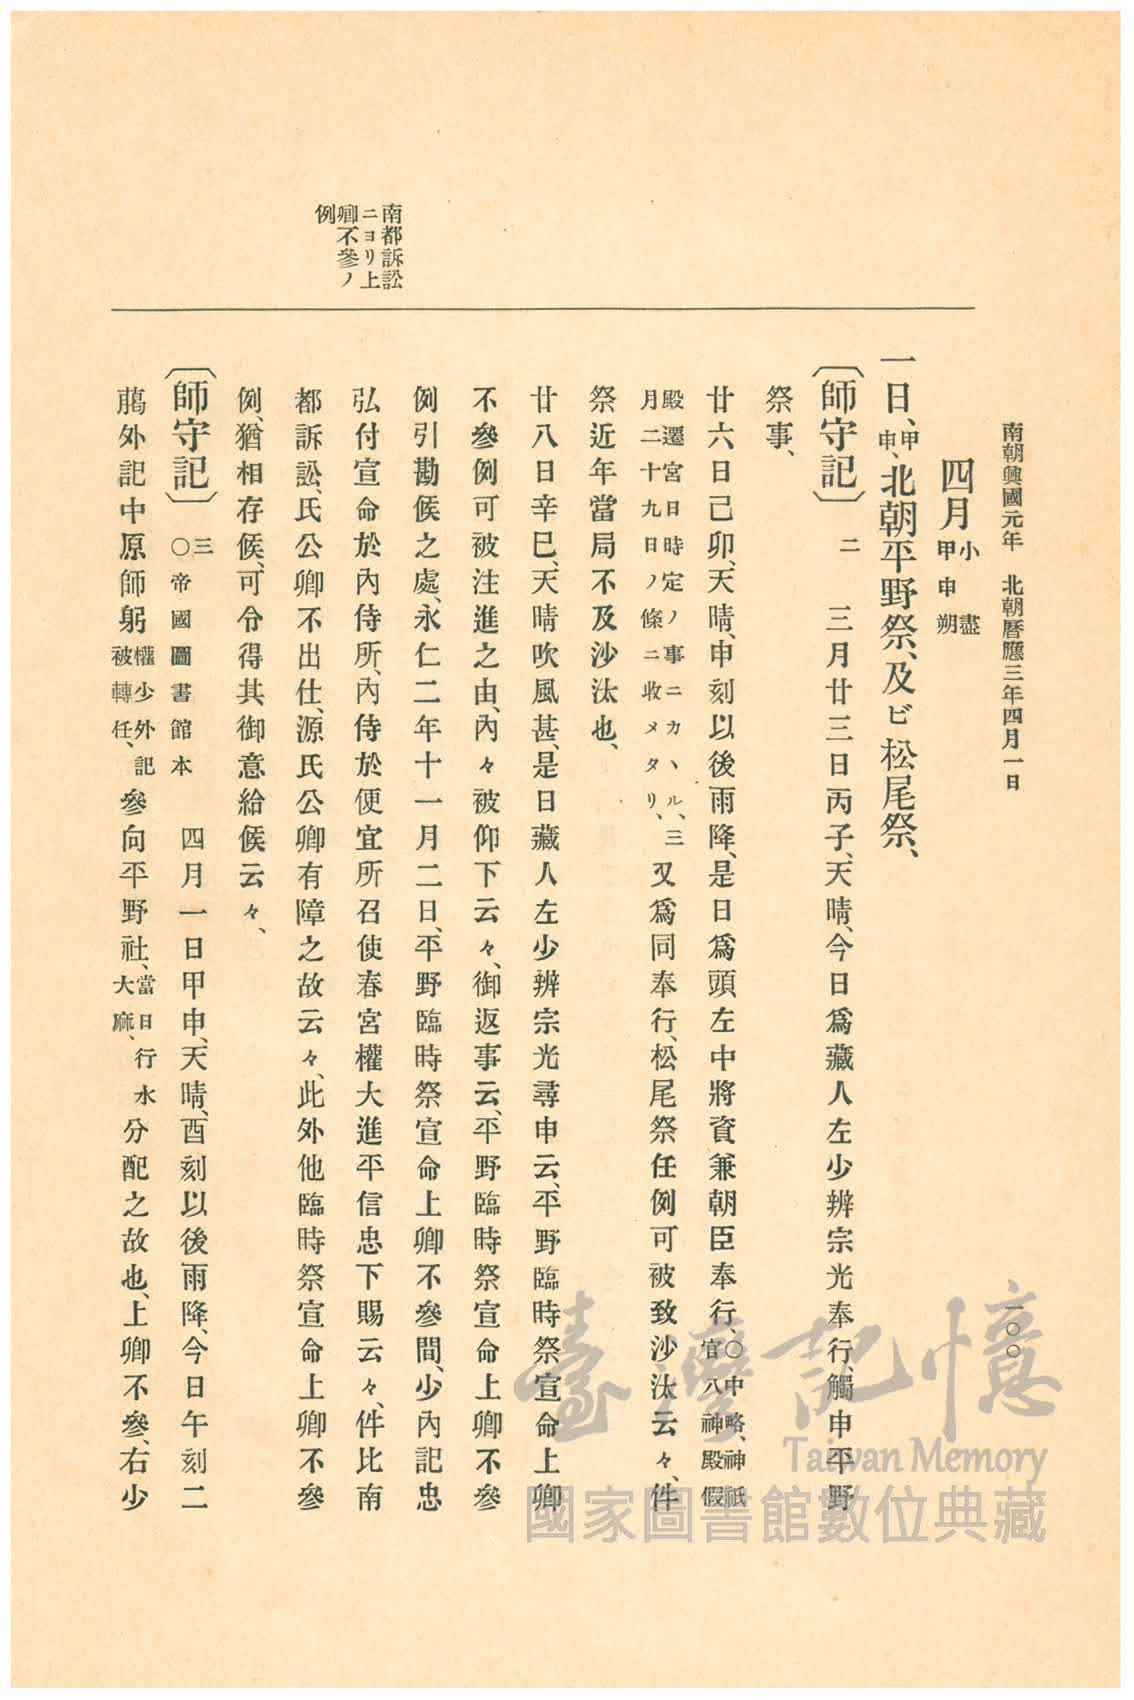 南朝興國元年　北朝曆應三年四月一日
一〇〇
四月小盡
甲申朔
一日、甲申、北朝平野祭、及ビ松尾祭、
〔師守記〕二　三月廿三日丙子、天晴、今日爲藏人左少辨宗光奉行、觸申平野
祭事、
廿六日己卯、天晴、申刻以後雨降、是日爲頭左中將資兼朝臣奉行、〇中略、神祇官八神殿假
殿遷宮日時定ノ事ニカヽル、三月二十九日ノ條ニ收メタリ、又爲同奉行、松尾祭任例可被致沙汰云々、件
祭近年當局不及沙汰也、
廿八日辛巳、天晴吹風甚、是日藏人左少辨宗光尋申云、平野臨時祭宣命上卿
不參例可被注進之由、內々被仰下云々、御返事云、平野臨時祭宣命上卿不參
例引勘候之處、永仁二年十一月二日、平野臨時祭宣命上卿不參間、少內記忠
弘付宣命於內侍所、內侍於便宜所召使春宮權大進平信忠下賜云々、件比南
都訴訟、氏公卿不出仕、源氏公卿有障之故云々、此外他臨時祭宣命上卿不參
例、猶相存候、可令得其御意給候云々、
南都訴訟
ニヨリ上
卿不參ノ
例
〔師守記〕三〇帝國圖書館本　四月一日甲申、天晴、酉刻以後雨降、今日午刻二
﨟外記中原師躬權少外記被轉任、參向平野社、當日行水大麻、分配之故也、上卿不參、右少
臺灣記憶
Taiwan Memory
國家圖書館數位典藏